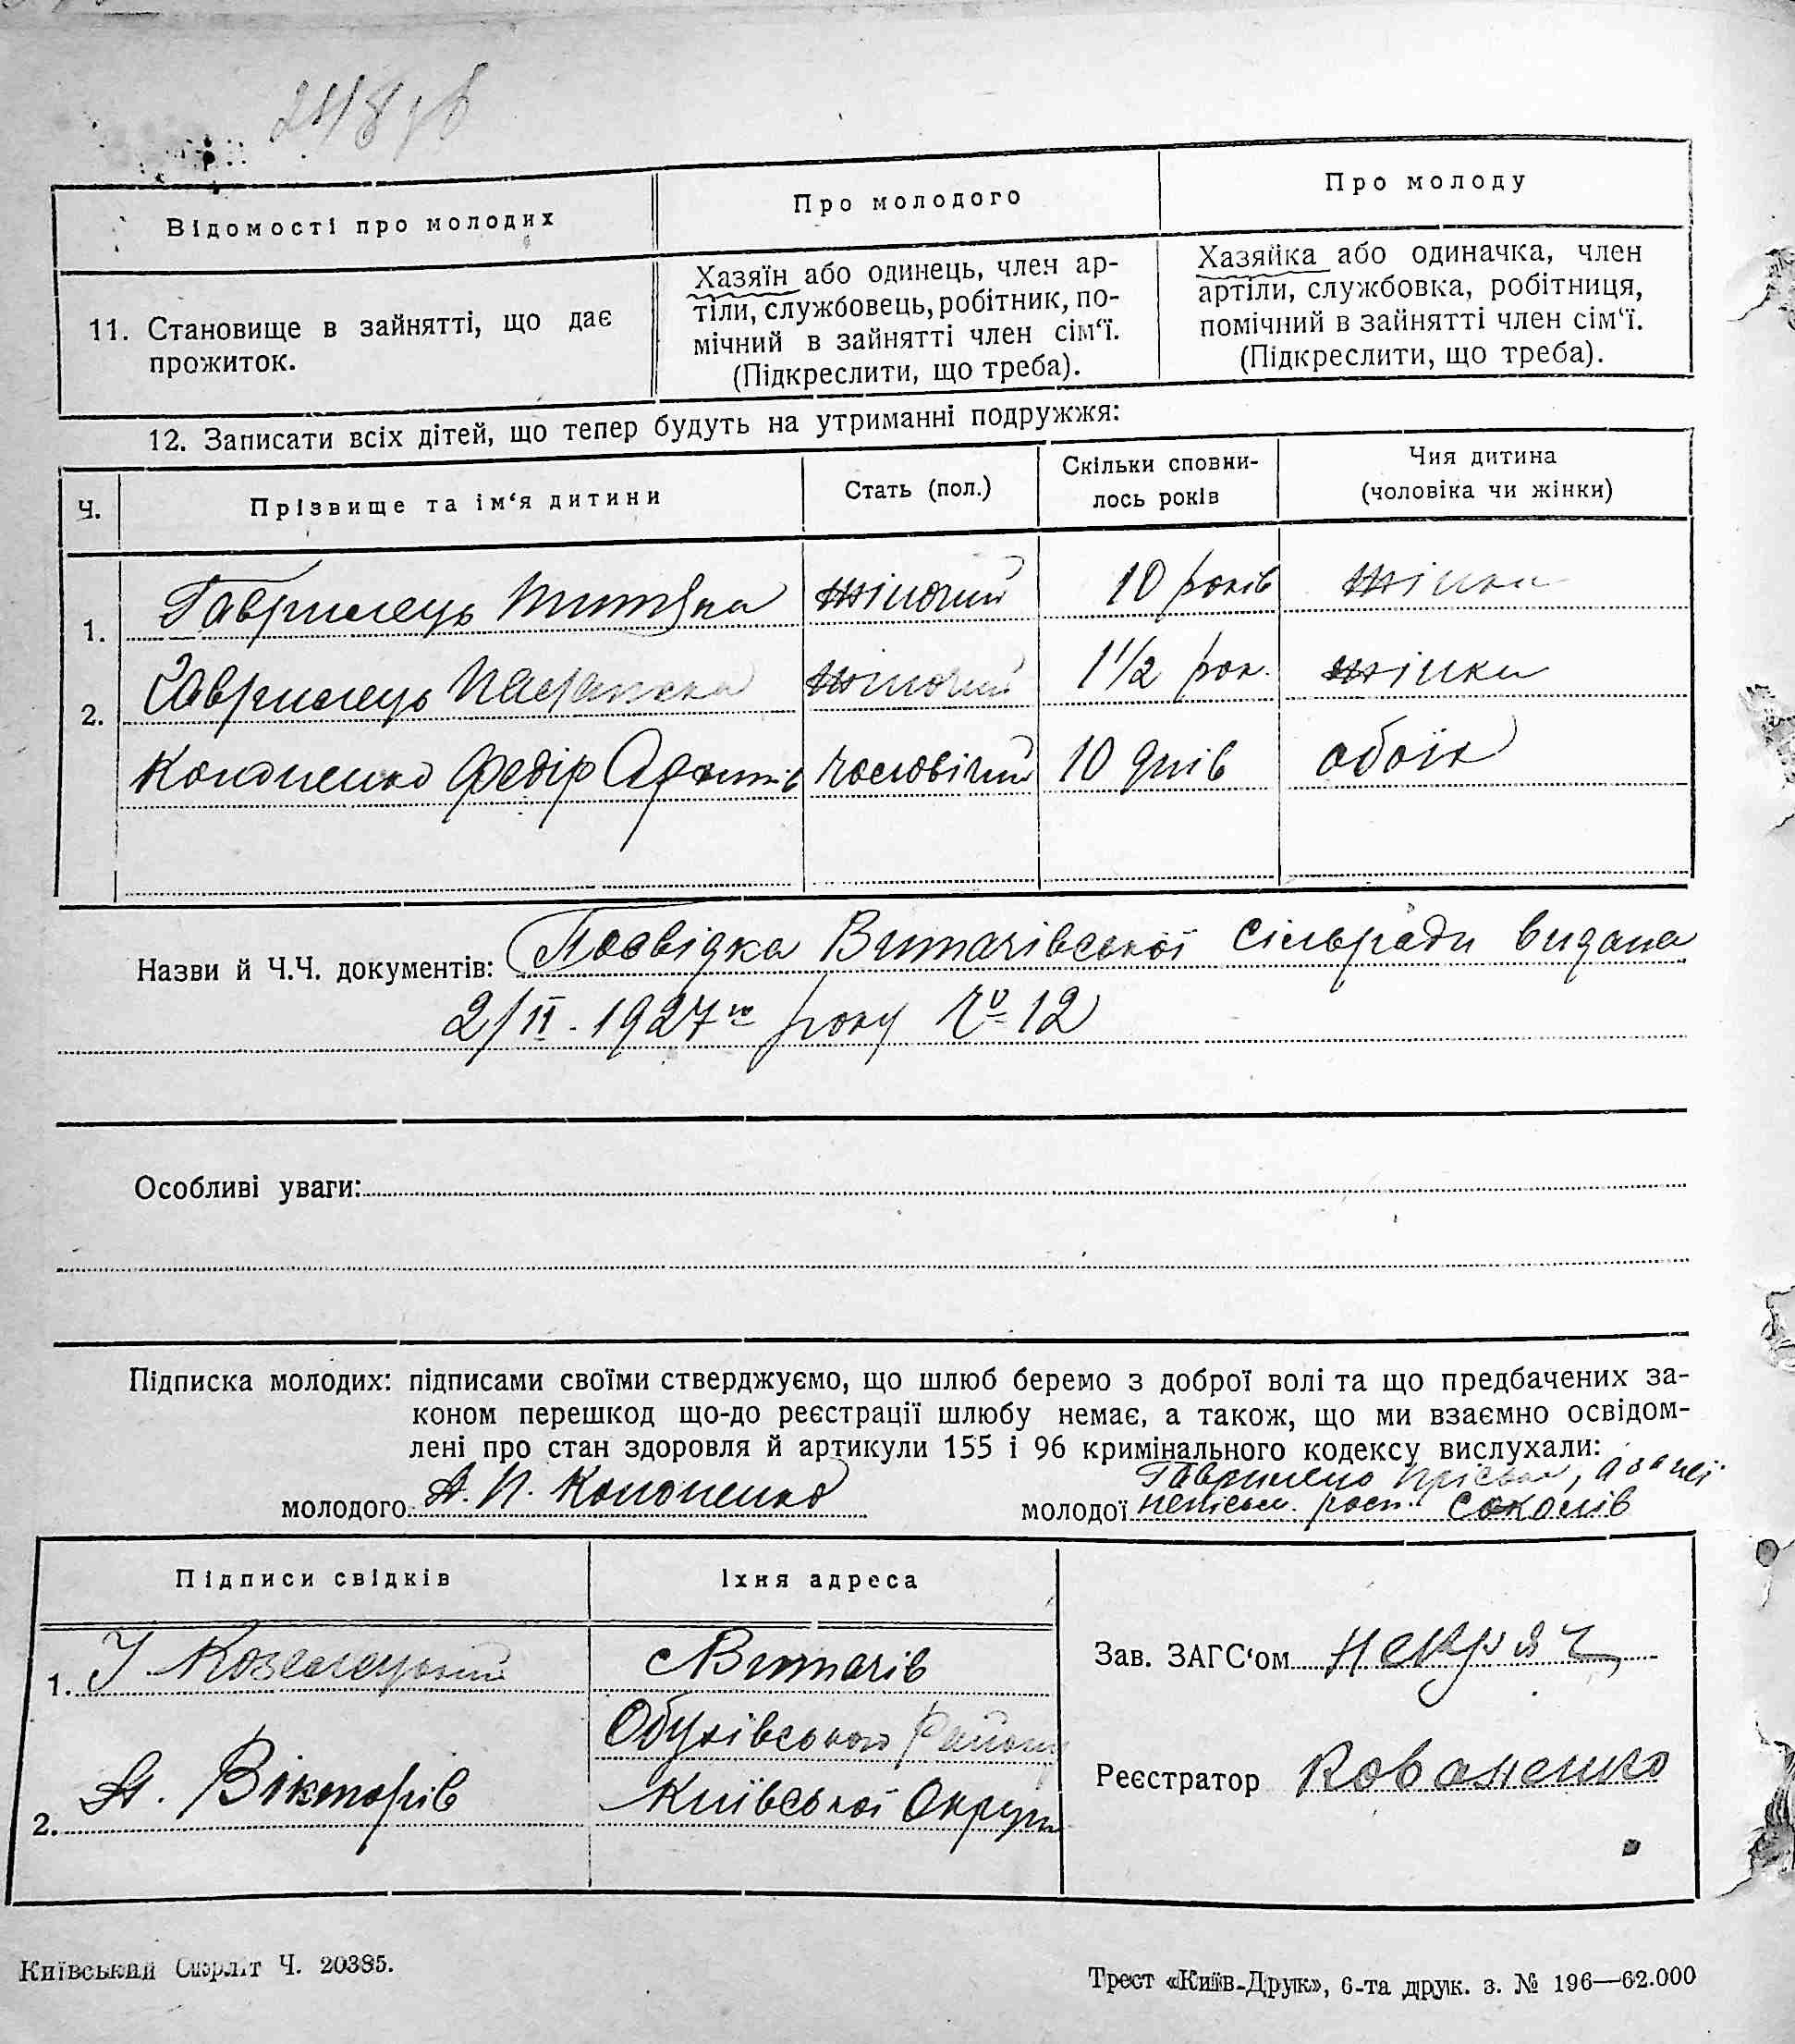 248 зв
Відомості про молодих
Про молодого
Про молоду
11. Становище в зайнятті, що дає
прожиток.
Хазяїн або одинець, член ар-
тіли, службовець, робітник, по-
мічний в зайнятті член сім‘ї.
(Підкреслити, що треба).
Хазяйка або одиначка, член
артіли, службовка, робітниця,
помічний в зайнятті член сім‘ї.
(Підкреслити, що треба).
12. Записати всіх дітей, що тепер будуть на утриманні подружжя:
Ч. Прізвище та ім‘я дитини Стать (пол.) Скільки сповни-
лось років
Чия дитина
(чоловіка чи жінки)
1. Гаврилець жіночий 10 років жінки
2. Гаврилець Параска жіночий 1½ рок. жінки
Кононенко Федір чоловічий 10 днів обоїх
Назви й Ч.Ч. документів: Посвідка Витачівської сільради видана
2/II - 1927го року Ч° 12
Особливі уваги:
Підписка молодих: підписами своїми стверджуємо, що шлюб беремо з доброї волі та що предбачених за-
коном перешкод що-до реєстрації шлюбу немає, а також, що ми взаємно освідом-
лені про стан здоровля й артикули 155 і 96 кримінального кодексу вислухали:
молодого А. П. Кононенко
Гаврилець Пріська, а за неї
молодої неписьм. росп. Соколів
Підписи свідків Їхня адреса
1. Витачів
Обухівського Району
2. А. Вікторів Київської Округи
Зав. ЗАГС‘ом Некряч
Реєстратор Коваленко
Київський Окрліт Ч. 20385.
Трест «Київ-Друк», 6-та друк. з. № 196—62.000